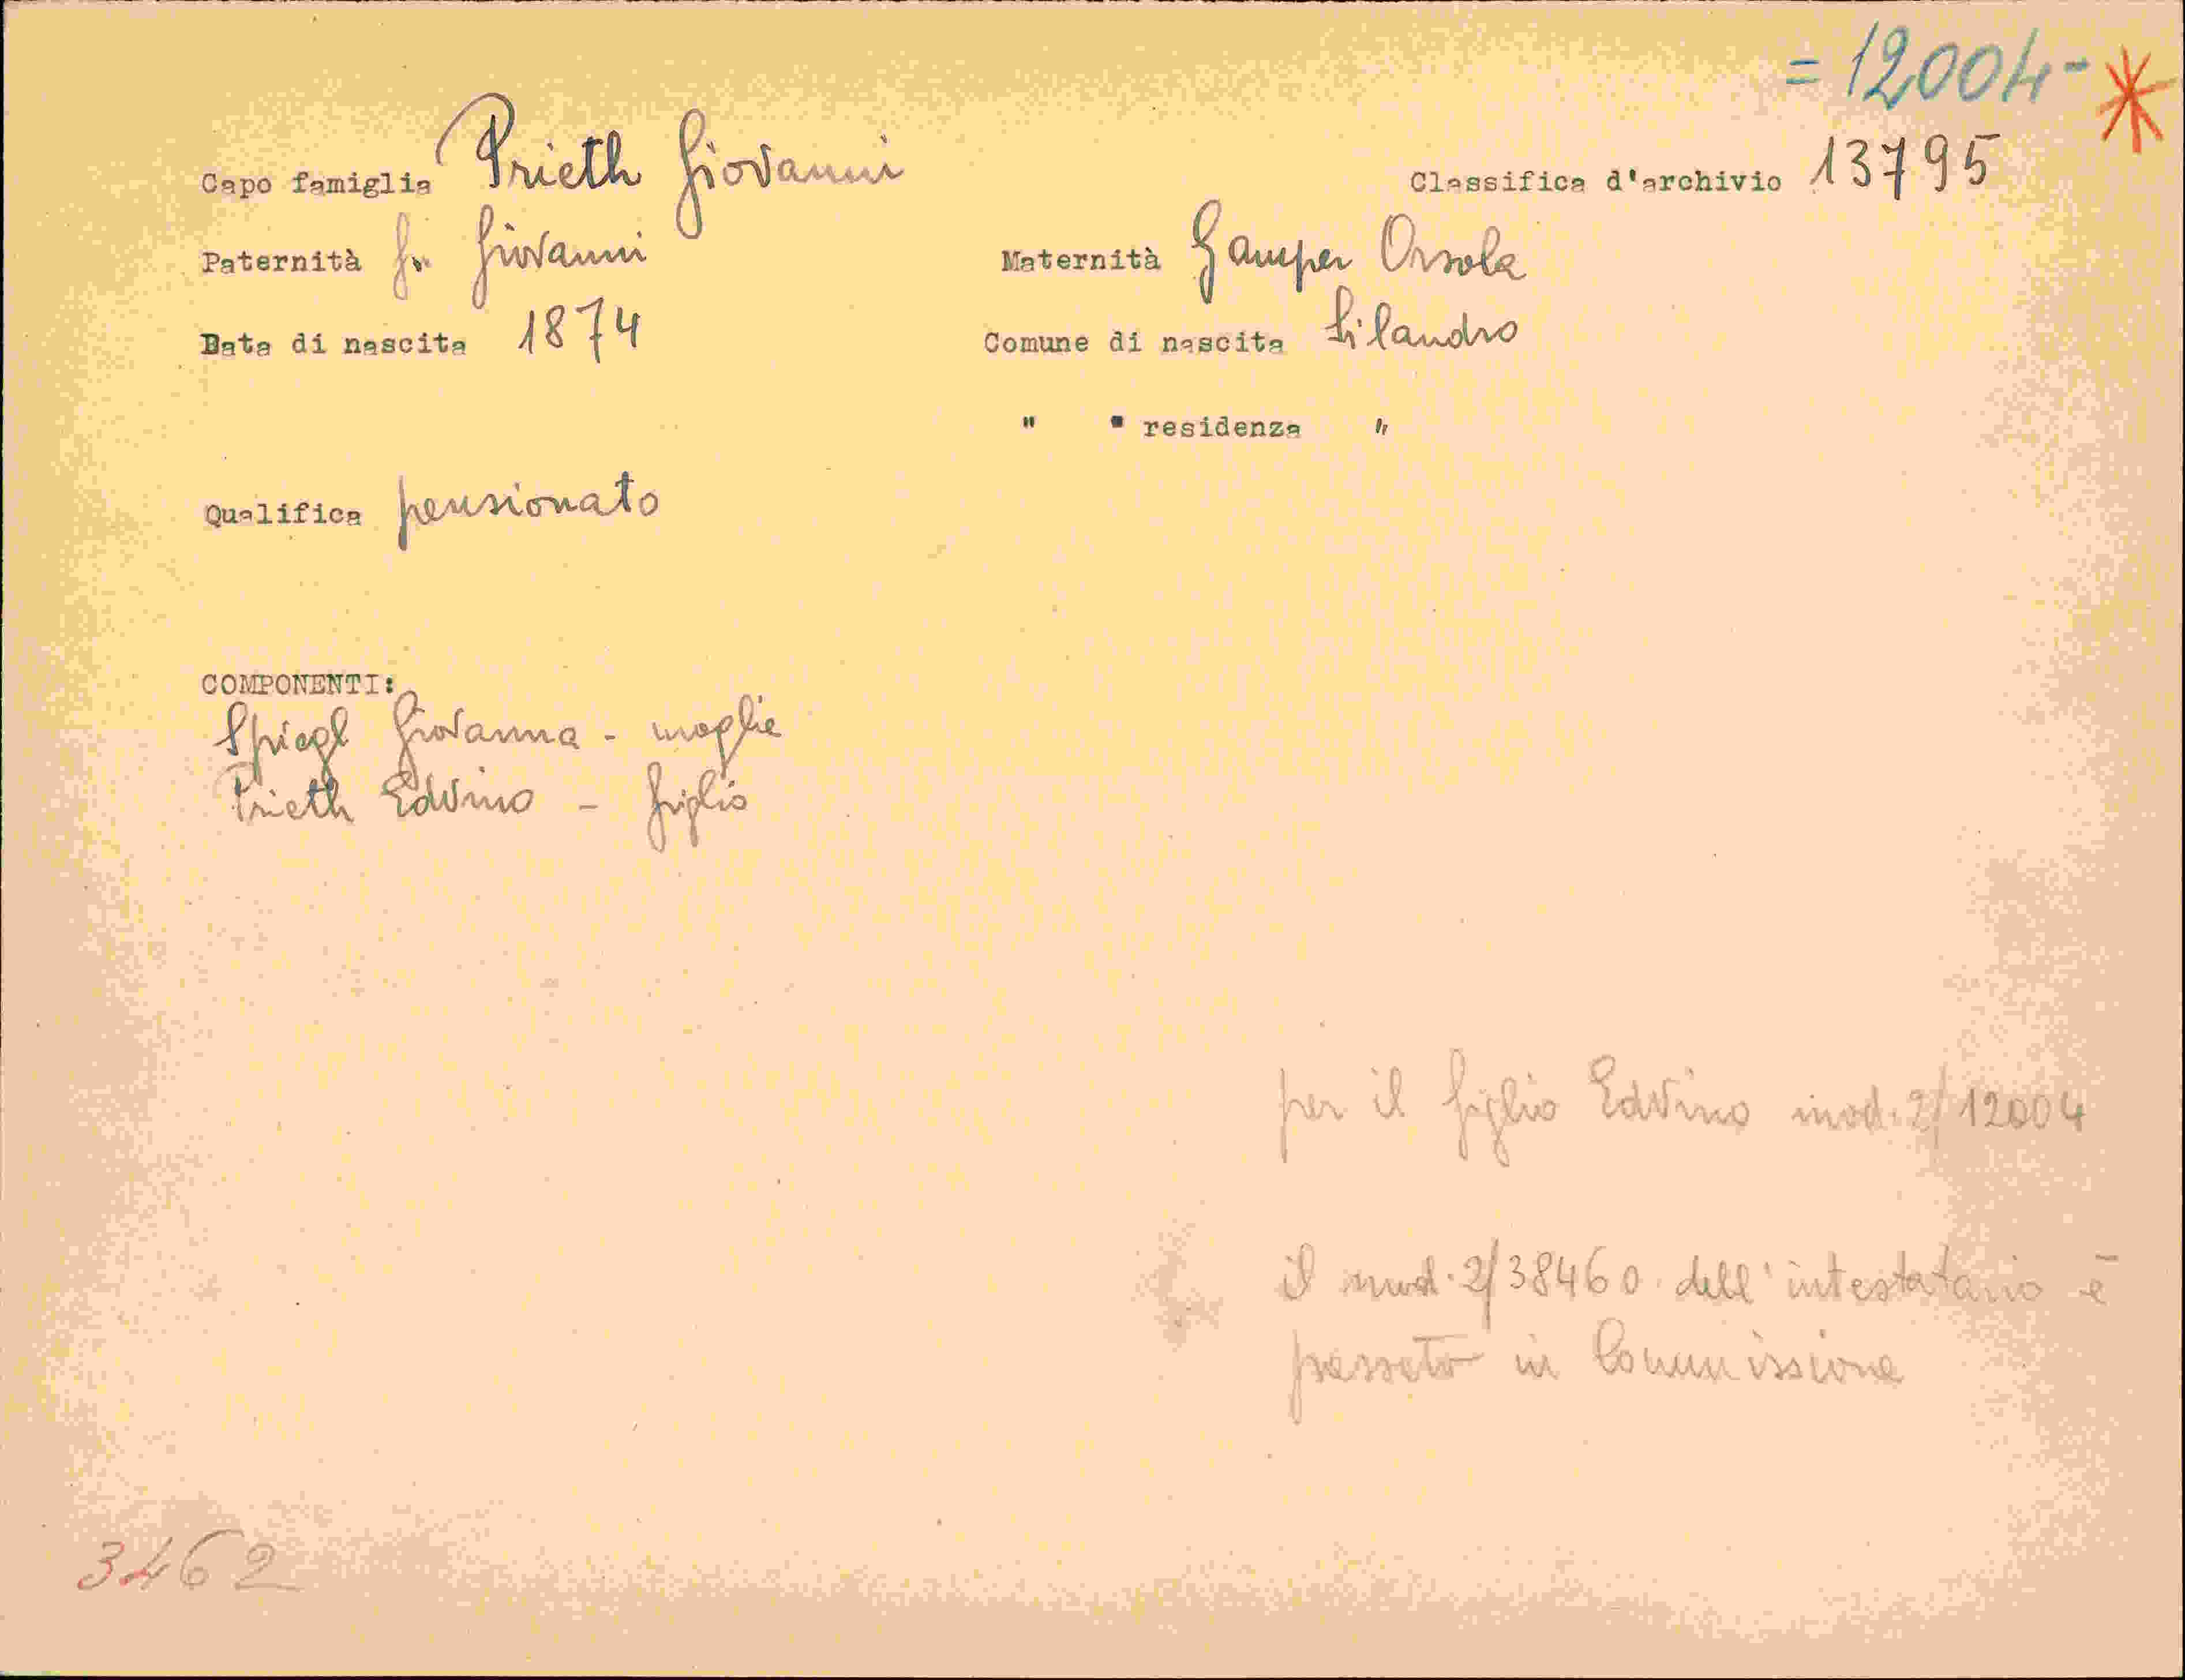 = 12004 -
Capo famiglia Prieth Giovanni
Classifica d'archivio 13795
Paternità fu Giovanni
Maternità Gamper Orsola
Data di nascita 1874
Comune di nascita Silandro
" " residenza "
Qualifica pensionato
COMPONENTI:
Spiegl Giovanna - moglie
Prieth Edvino - figlio
per il figlio Edvino mod. 2/12004
il mod. 2/38460 dell'intestatario è
passato in Commissione
3462